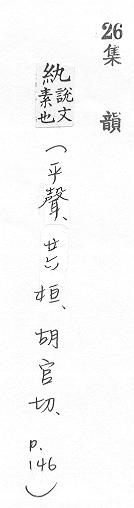 26集韻
紈說文素也(平聲、廿六桓、胡官切、p.146)